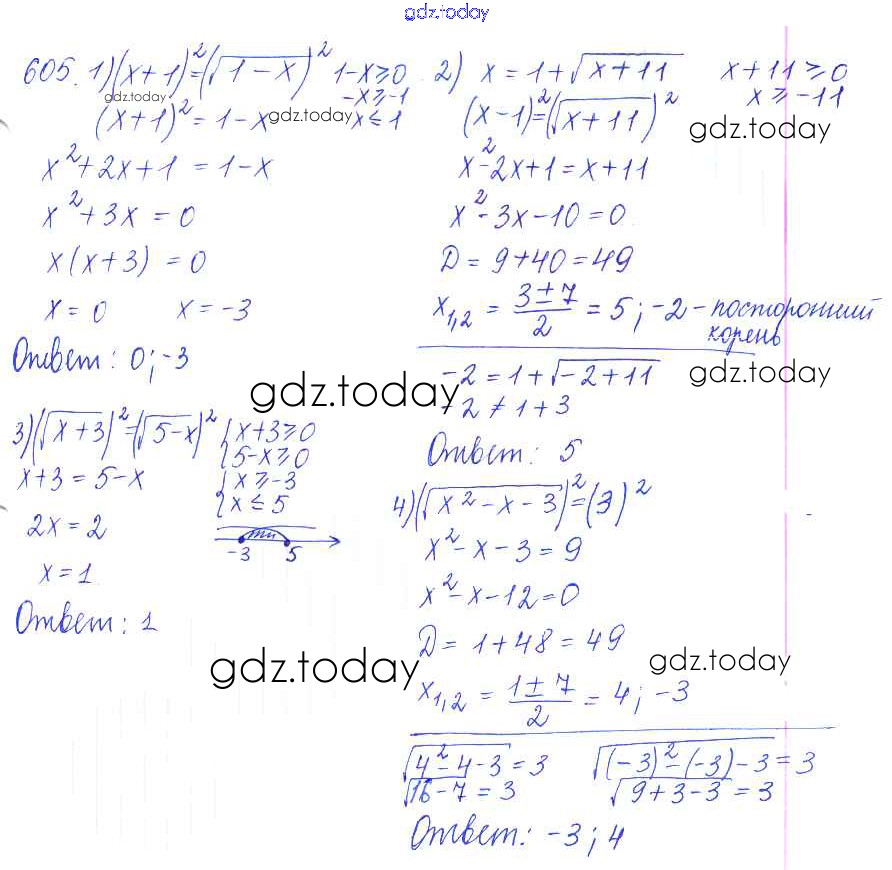 gdz.today
605. 1) (x+1)²=(√(1-x))² 1-x≥0
-x≥-1
gdz.today
(x+1)² = 1-x x≤1
gdz.today
x²+2x+1 = 1-x
x²+3x = 0
x(x+3) = 0
x = 0 x = -3
Ответ: 0; -3
2) x = 1+√(x+11) x+11≥0
x≥-11
(x-1)²=(√(x+11))²
gdz.today
x²-2x+1=x+11
x²-3x-10=0
D = 9+40=49
x₁,₂ = (3±7)/2 = 5; -2 - посторонний
корень
-2 = 1+√(-2+11)
gdz.today
-2 ≠ 1+3
Ответ: 5
gdz.today
3) (√(x+3))²=(√(5-x))² {x+3≥0
{5-x≥0
x+3 = 5-x {x≥-3
{x≤5
2x = 2
-3 5
x=1
Ответ: 1
4) (√(x²-x-3))²=(3)²
x²-x-3=9
x²-x-12=0
D = 1+48=49
gdz.today
gdz.today
x₁,₂ = (1±7)/2 = 4; -3
√(4²-4-3)=3 √((-3)²-(-3)-3)=3
√(16-7)=3 √(9+3-3)=3
Ответ: -3; 4